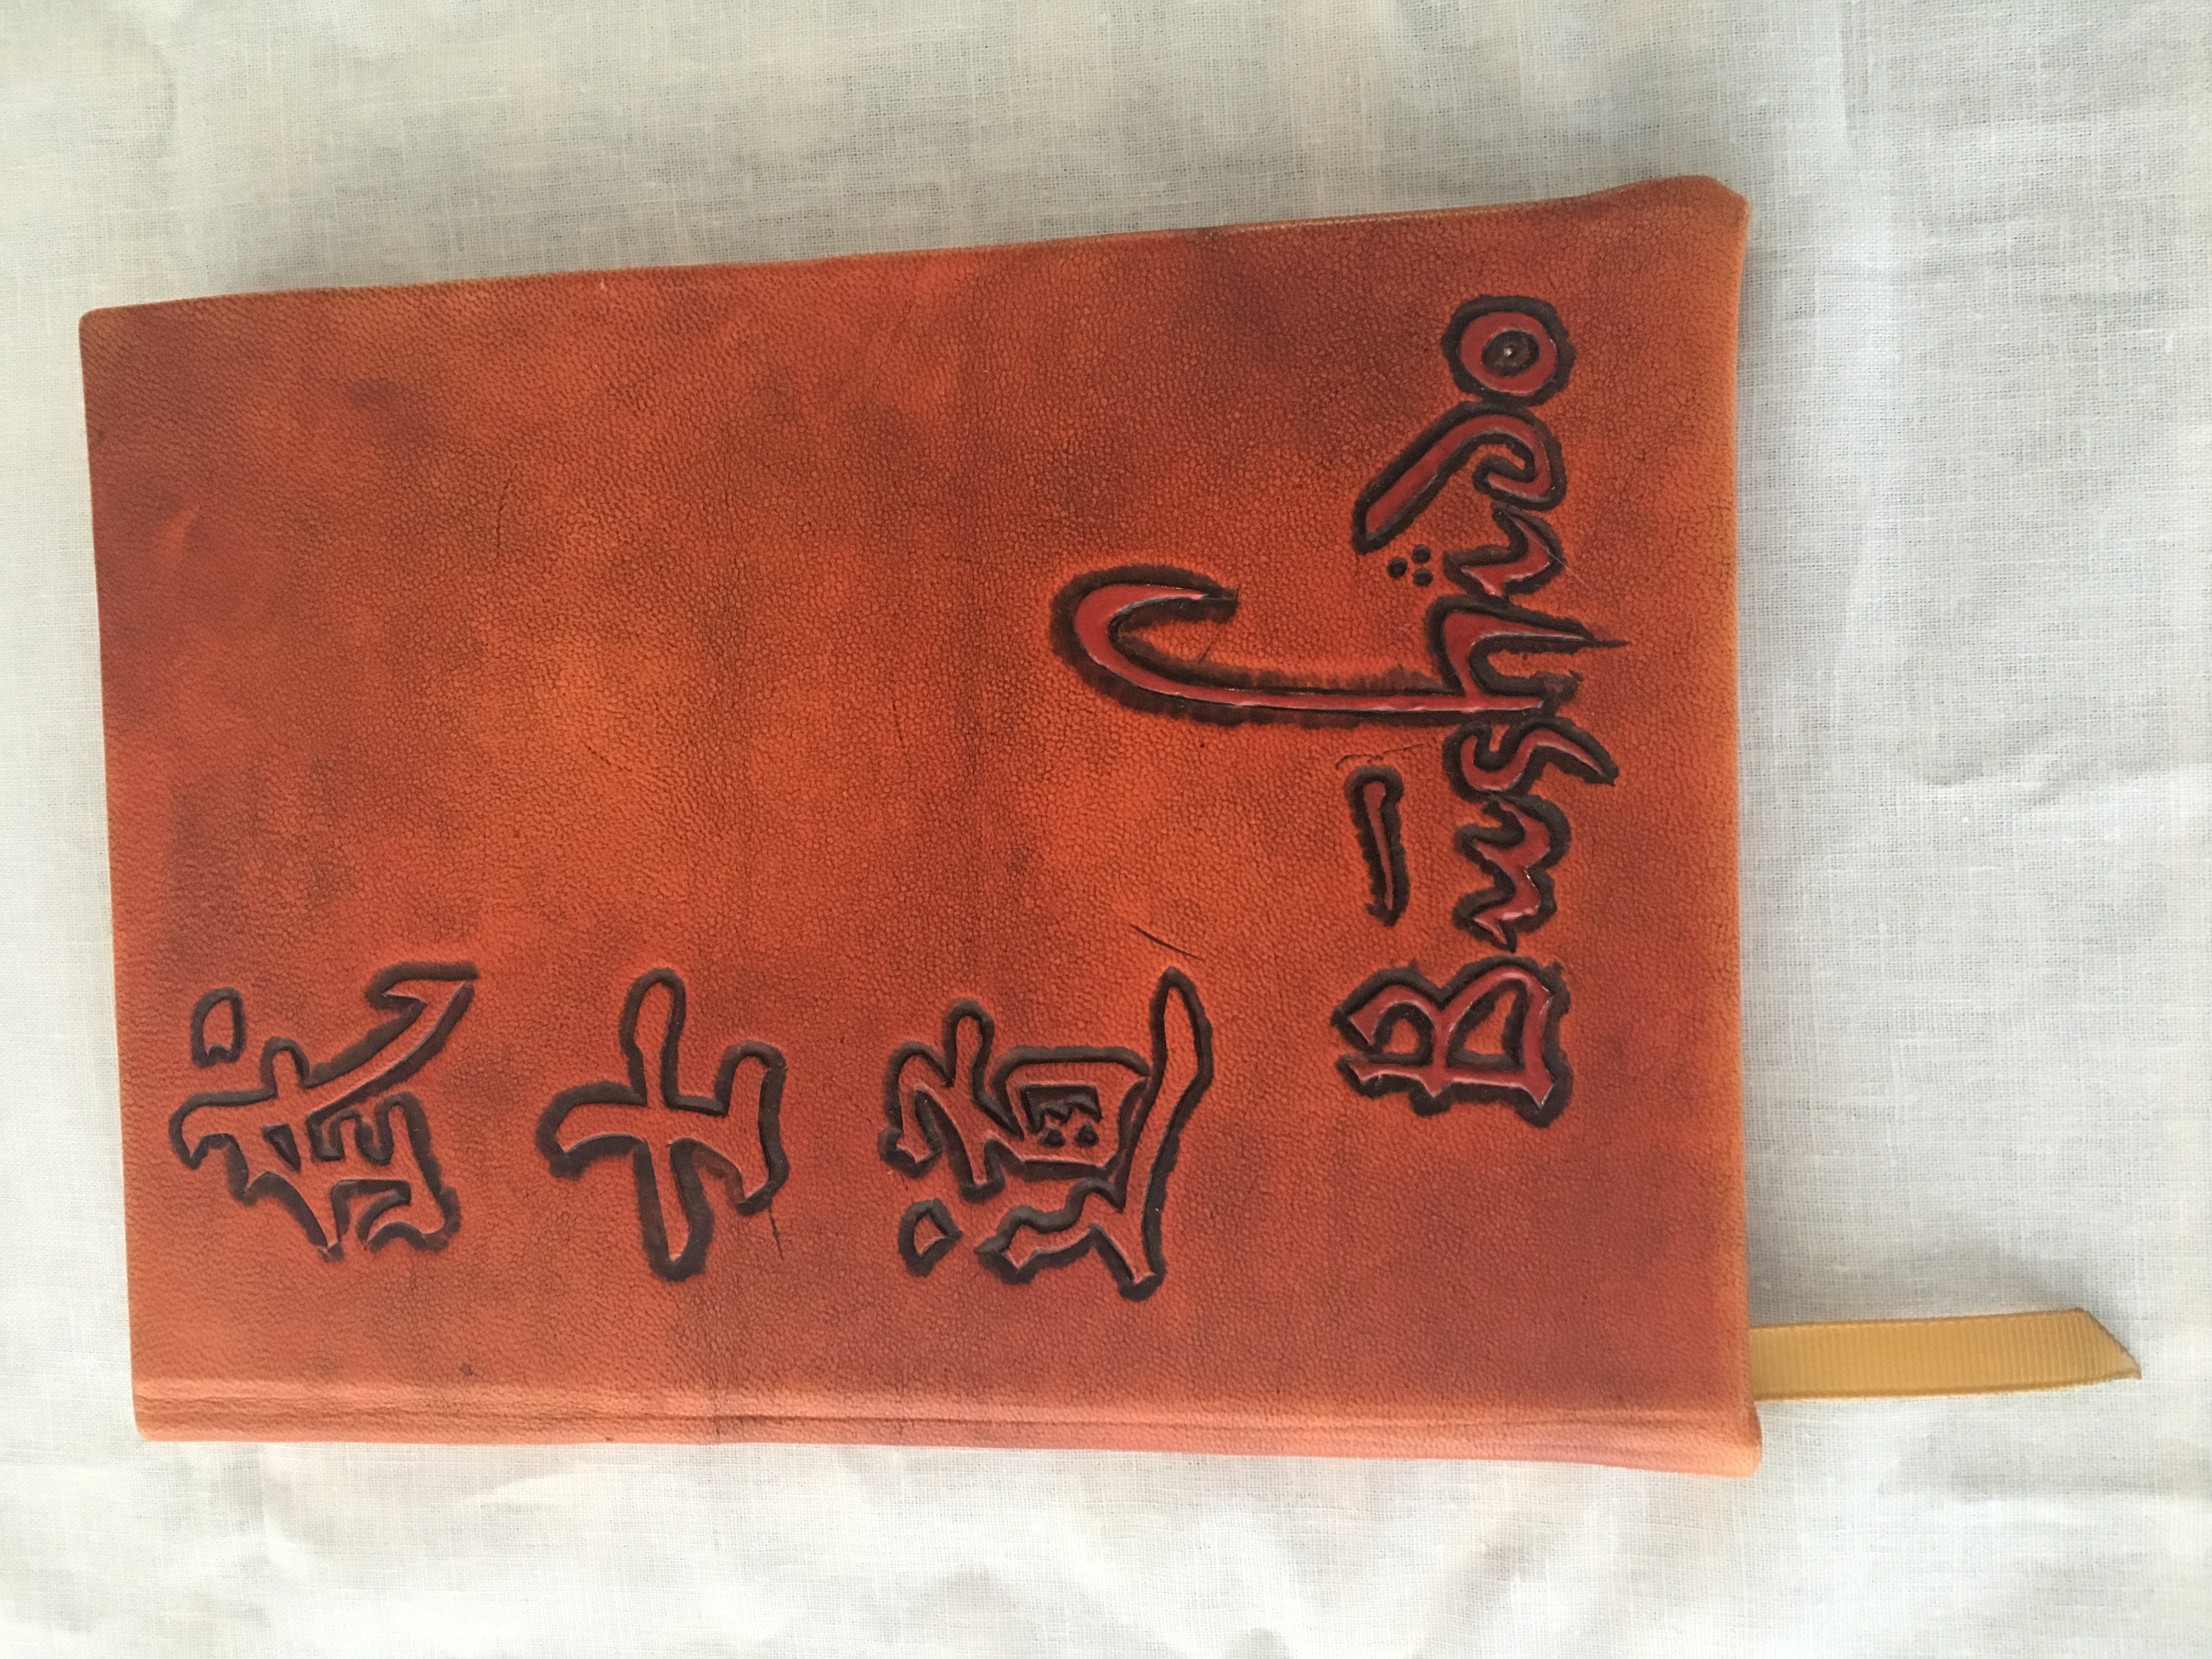 武
士
道
Būshido